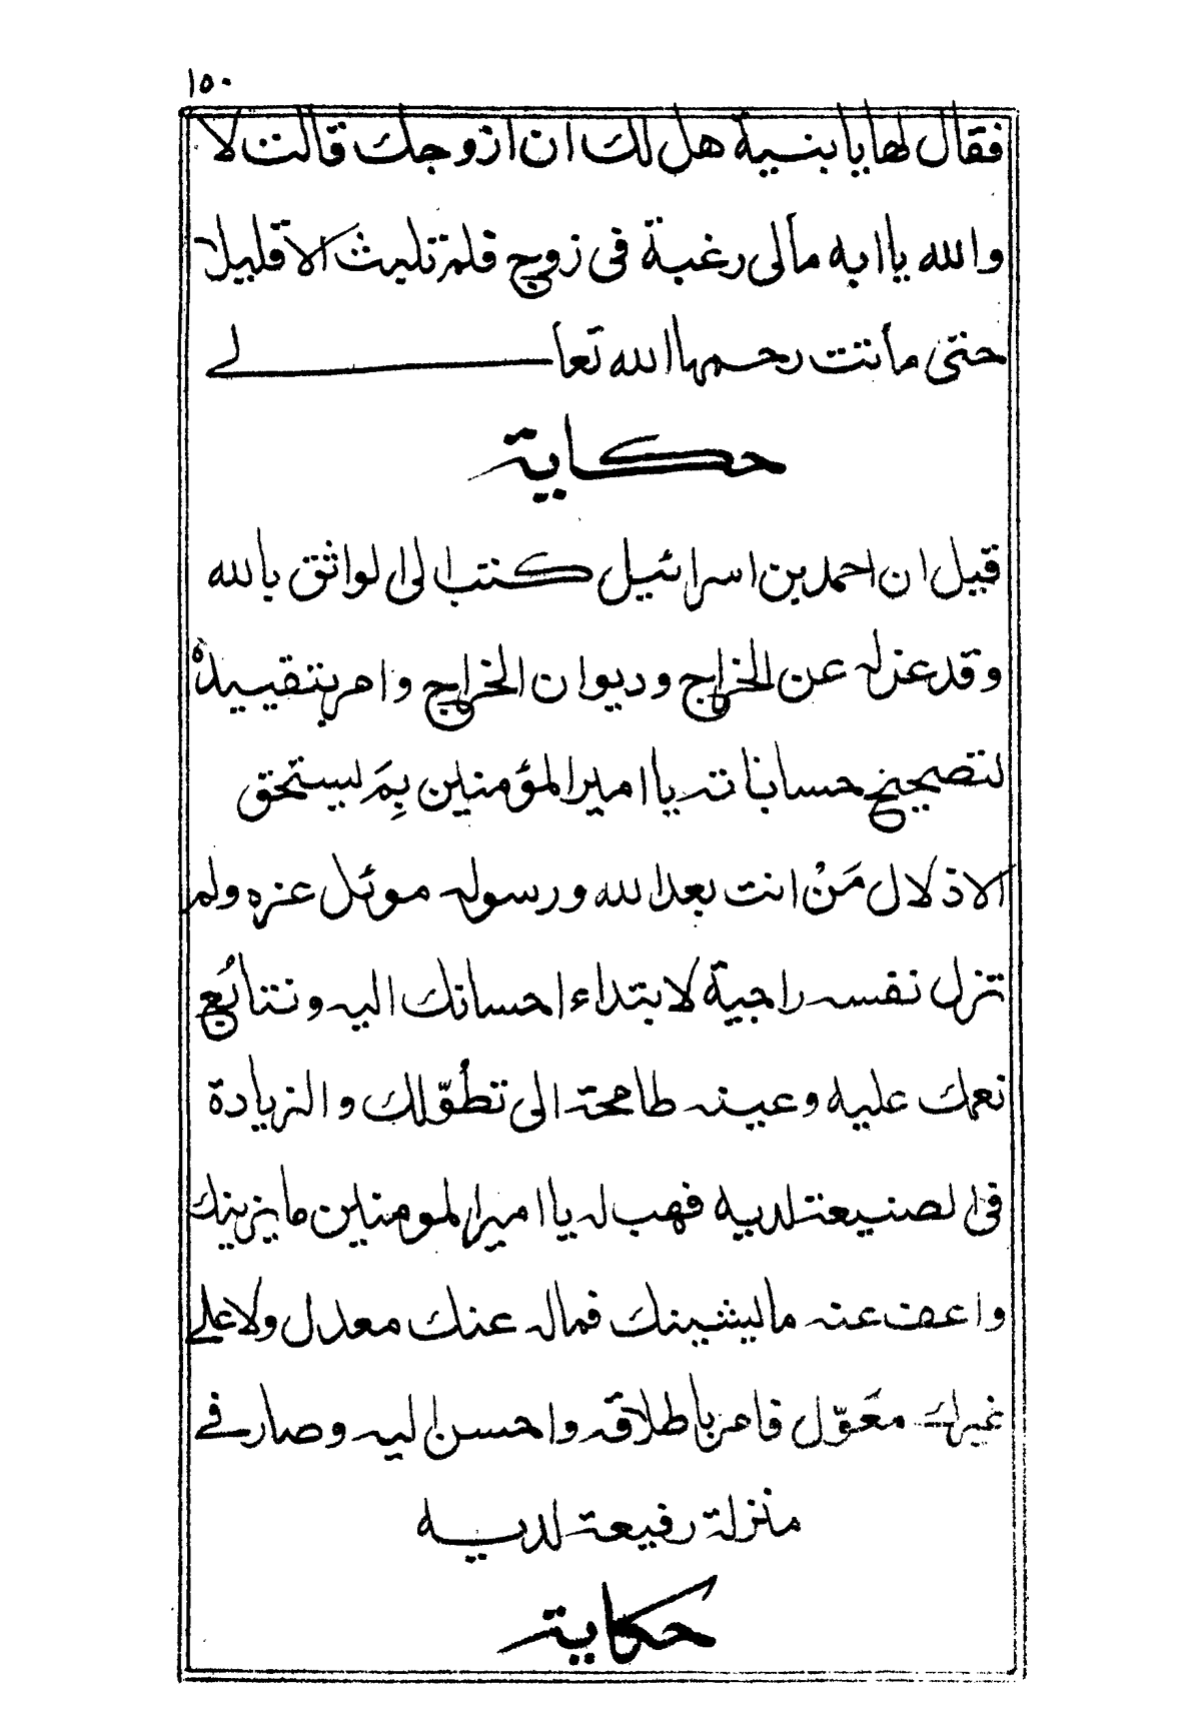 ١٥٠
فقال لها يا بنية هل لك ان ازوجك قالت لا
والله يا ابه مالى رغبة فى زوج فلم تلبث الا قليلا
حتى ماتت رحمها الله تعالے
حكاية
قيل ان احمد بن اسرائيل كتب الى الواثق بالله
وقد عزله عن الخراج وديوان الخراج وامر بتقييده
لتصحيح حساباته يا امير المؤمنين بِمَ يستحق
الاذلال مَنْ انت بعد الله ورسوله موئل عزه ولم
تزل نفسه راجية لابتداء احسانك اليه وتتابُع
نعمك عليه وعينه طامحة الى تطُوّلك والزيادة
فى الصنيعة لديه فهب له يا امير المومنين ما يزينك
واعف عنه ما يشينك فماله عنك معدل ولا على
غيرك معَوّل فامر باطلاقه واحسن اليه وصار فے
منزلة رفيعة لديه
حكاية